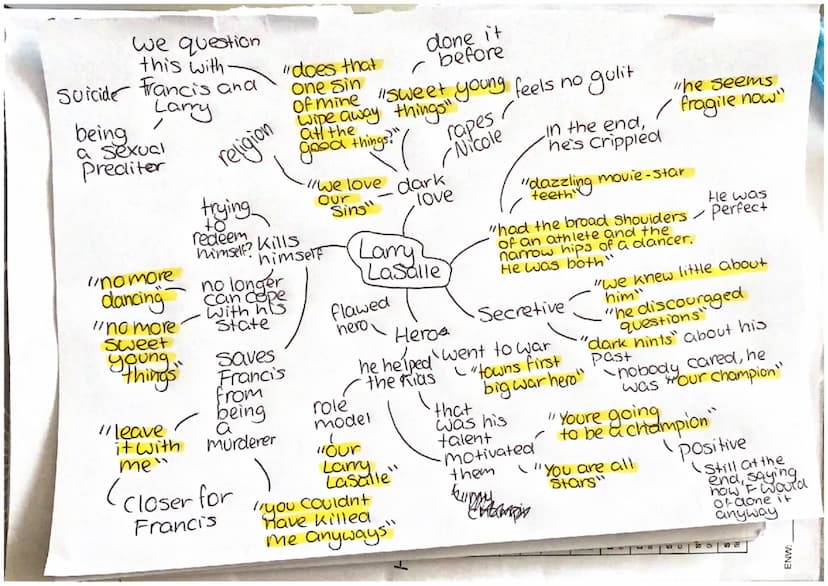 we question
this with
Francis and
Larry
suicide
being
a sexual
prediter
religion
"does that
one sin
of mine
wipe away
all the
good things?"
done it
before
"sweet young
things"
rapes
Nicole
feels no gulit
"we love
our
sins"
dark
love
in the end,
he's crippled
"he seems
fragile now"
"dazzling movie-star
teeth"
"had the broad shoulders
of an athlete and the
narrow hips of a dancer.
He was both"
He was
perfect
Larry
LaSalle
trying
to
redeem
himself?
Kills
himself
no longer
can cope
with his
state
"no more
dancing"
"no more
sweet
young
things"
saves
Francis
from
being
a
murderer
"leave
it with
me"
closer for
Francis
"you couldnt
have killed
me anyways"
Secretive
"we knew little about
him"
"he discouraged
questions"
"dark hints" about his
past
nobody cared, he
was "our champion"
flawed
hero
Hero
went to war
"towns first
big war hero"
he helped
the kids
role
model
"our
Larry
LaSalle"
that
was his
talent
motivated
them
"Youre going
to be a champion"
"You are all
stars"
positive
still at the
end, saying
how F would
of done it
anyway
ENW: